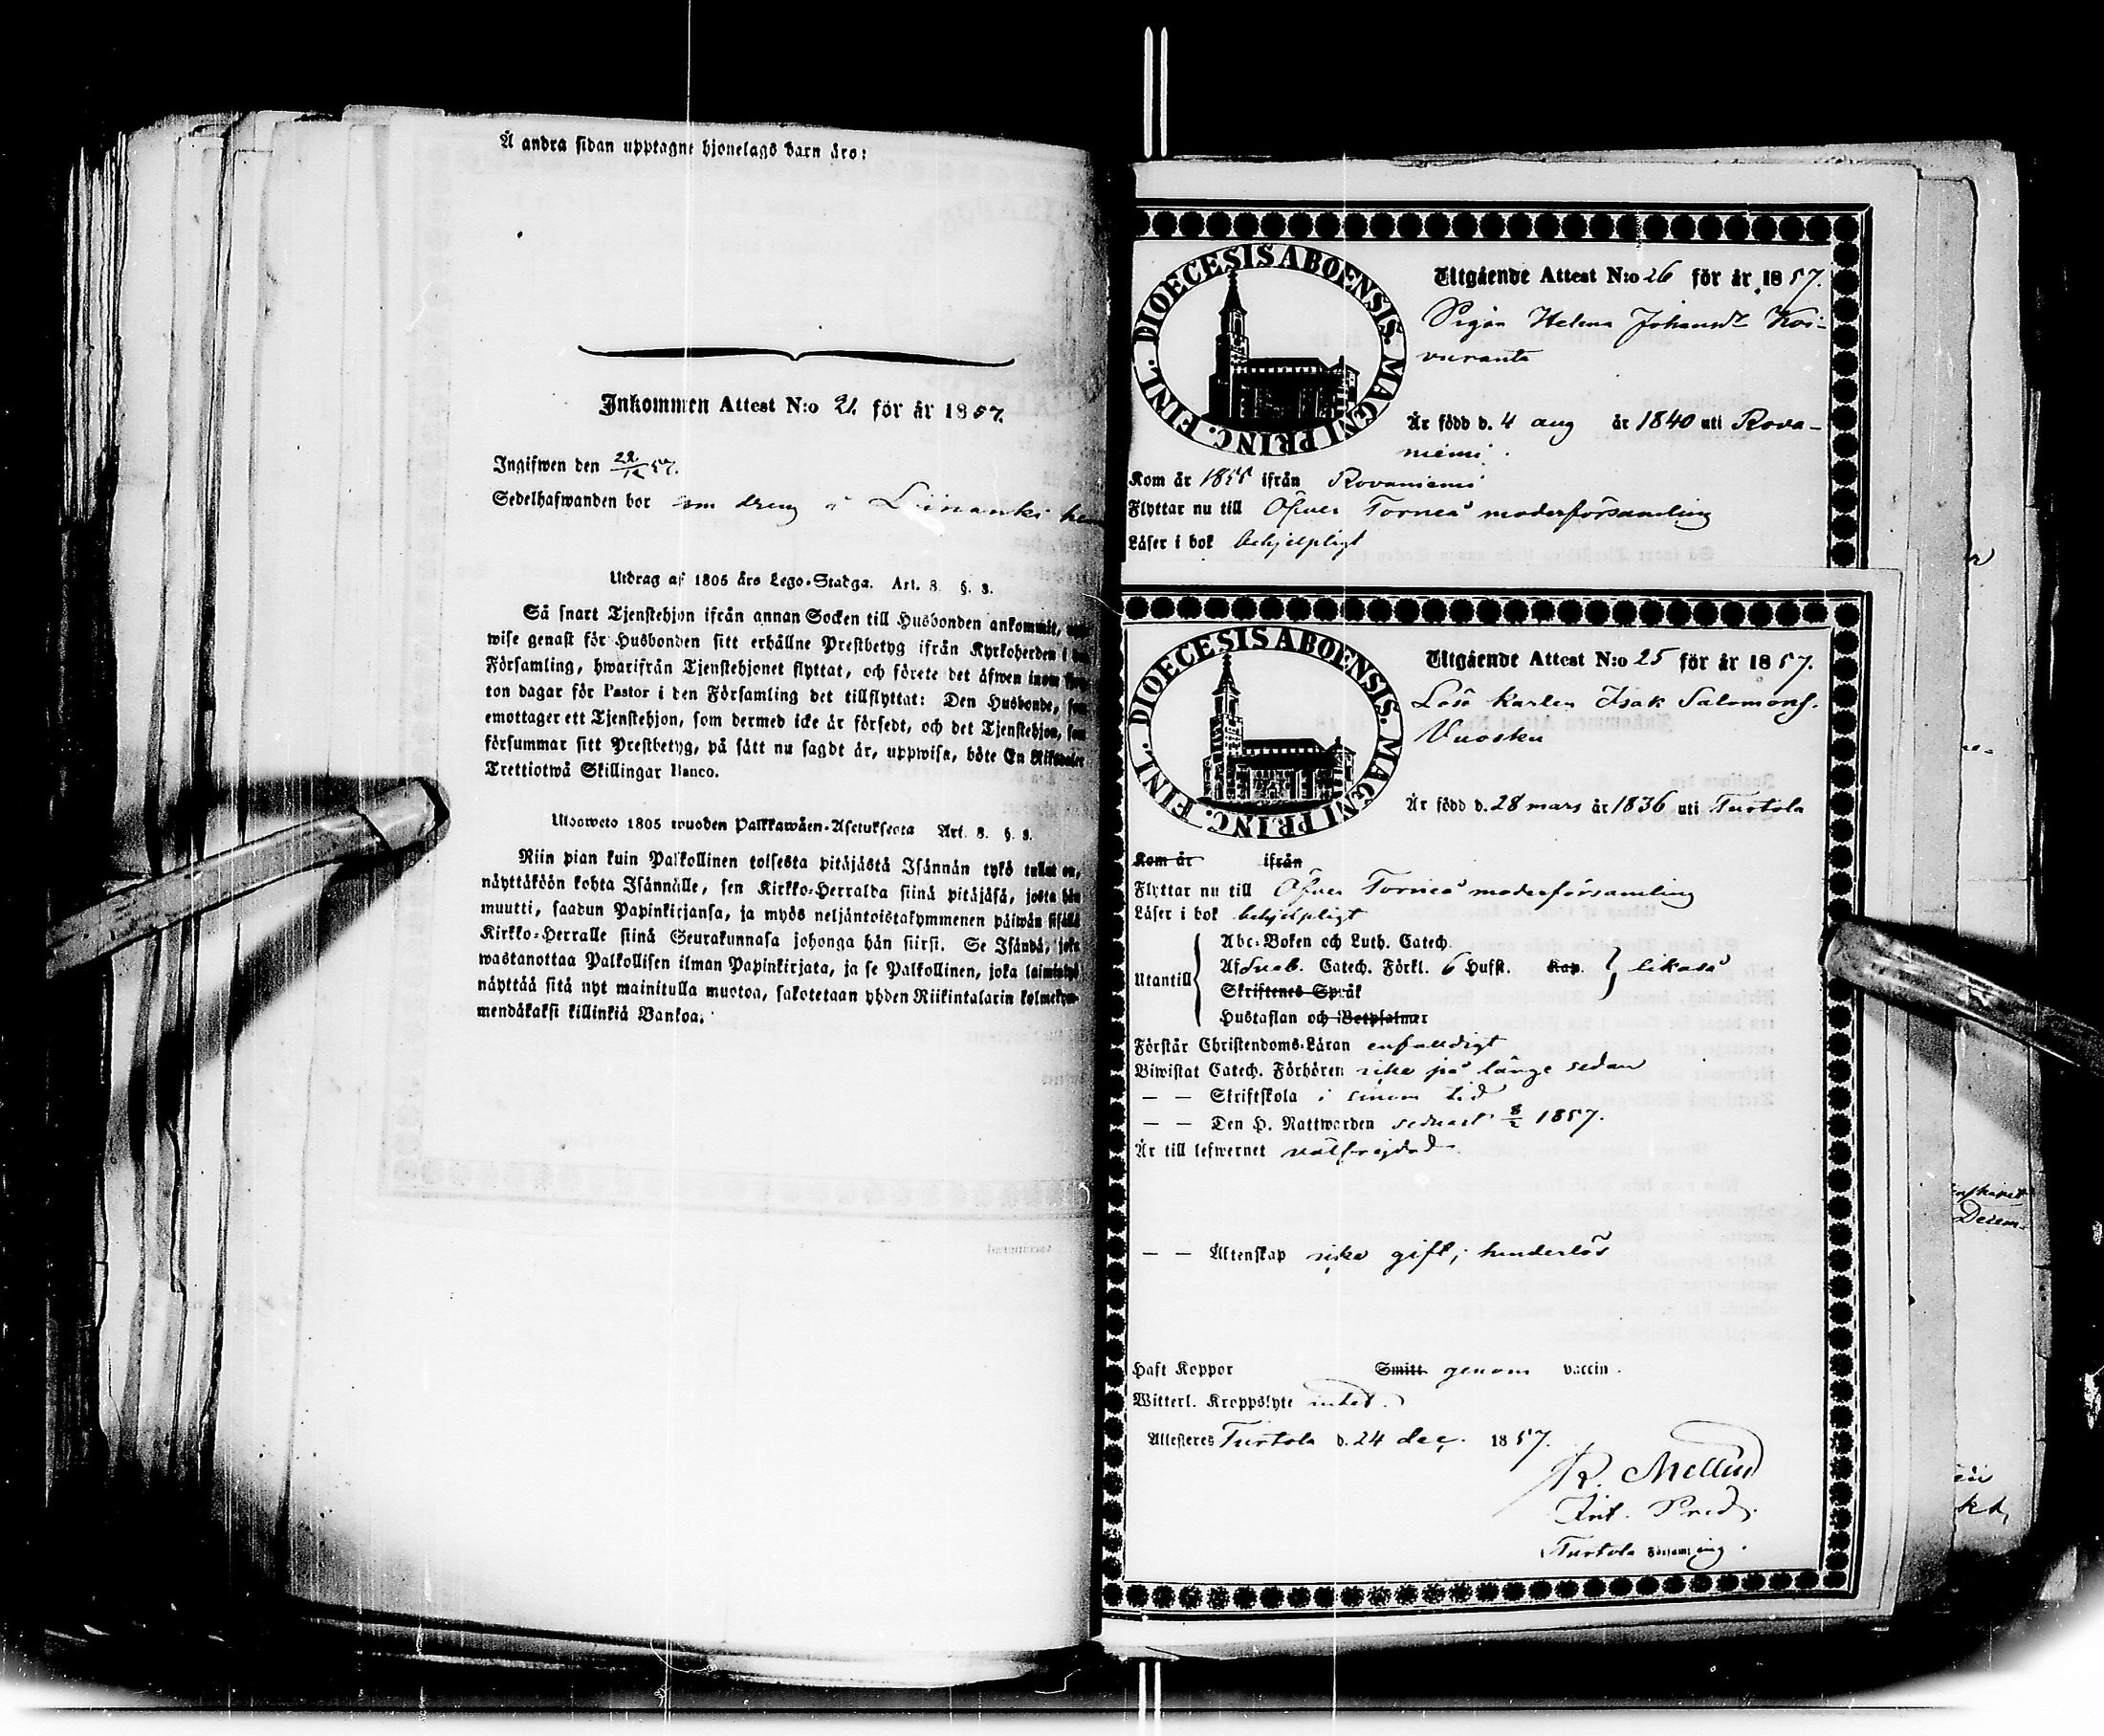 Å andra sidan upptagne hjonelags barn äro:
Inkommen Attest N:o 21. för år 1857.
Ingifwen den 22/12 57.
Sedelhafwanden bor som dreng å Liinanki
Utdrag af 1805 års Lego-Stadga. Art. 8. §. 8.
Så snart Tjenstehjon ifrån annan Socken till Husbonden ankommit,
wise genast för Husbonden sitt erhållne Prestbetyg ifrån Kyrkoherden i
Församling, hwarifrån Tjenstehjonet flyttat, och förete det äfwen inom
ton dagar för Pastor i den Församling det tillflyttat: Den Husbonde, som
emottager ett Tjenstehjon, som dermed icke är försedt, och det Tjenstehjon, som
försummar sitt Prestbetyg, på sätt nu sagdt är, uppwisa, böte En Riksdaler
Trettiotwå Skillingar Banco.
Ulosweto 1805 wuoden Palkkawäen-Asetuksesta Art. 8. §. 8.
Niin pian kuin Palkollinen toisesta pitäjästä Isännän tykö tullut on,
näyttäköön kohta Isännälle, sen Kirkko-Herralda siinä pitäjäsä, josta hän
muutti, saadun Papinkirjansa, ja myös neljäntoistakymmenen päiwän sisällä
Kirkko-Herralle siinä Seurakunnasa johonga hän siirsi. Se Isändä, joka
wastanottaa Palkollisen ilman Papinkirjata, ja se Palkollinen, joka laiminlyö
näyttää sitä nyt mainitulla muotoa, sakotetaan yhden Riikintalarin kolmekym-
mendäkaksi killinkiä Bankoa.
DIOECESIS ABOENSIS. MAGNI PRINC. FINL.
Utgående Attest N:o 26 för år 1857.
Pigan Helena Johansdr Koi-
vuranta
Är född d. 4 aug år 1840 uti Rova-
niemi.
Kom år 1855 ifrån Rovaniemi
Flyttar nu till Öfver Torneå moderförsamling
Läser i bok behjelpligt
DIOECESIS ABOENSIS. MAGNI PRINC. FINL.
Utgående Attest N:o 25 för år 1857.
Löse karlen Isak Salomons.
Vuosku
Är född d. 28 mars år 1836 uti Turtola
Kom år ifrån
Flyttar nu till Öfver Torneå moderförsamling
Läser i bok behjelpligt
Utantill
Abc-Boken och Luth. Catech.
Af Sveb. Catech. Förkl. 6 Hufst. Kap. likaså
Skriftenes Språk
Hustaflan och Betpsalmer
Förstår Christendoms-Läran enfaldigt
Biwistat Catech. Förhören icke på länge sedan
— — Skriftskola i sinom tid
— — Den H. Nattwarden sednast 8/2 1857.
Är till lefwernet välfrejdad
— — Äktenskap icke gift, hinderlös
Haft Koppor Smitt. genom vaccin.
Witterl. Kroppslyte intet.
Attesteres Turtola d. 24 dec. 1857.
R. Mellin
Ant. Pred.
Turtola Församling.